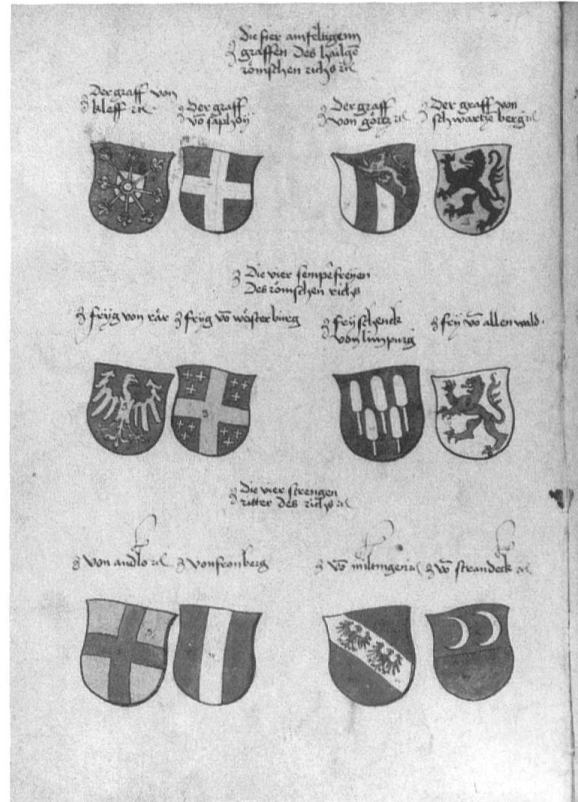 Die fier amfeltigenn
graffen des hailgē
römschen richs
Der graff von
kleff
Der graff
vō saphoy
Der graff
von görtz
Der graff von
schwartze berg
Die vier sempefreyen
Des römschen richs
fryg von rär
fryg vō wësterburg
fry schenck
von limpurg
fry vō allen wald
Die vier strengen
ritter des richs
von andlo
von fronberg
vō
vō strandeck